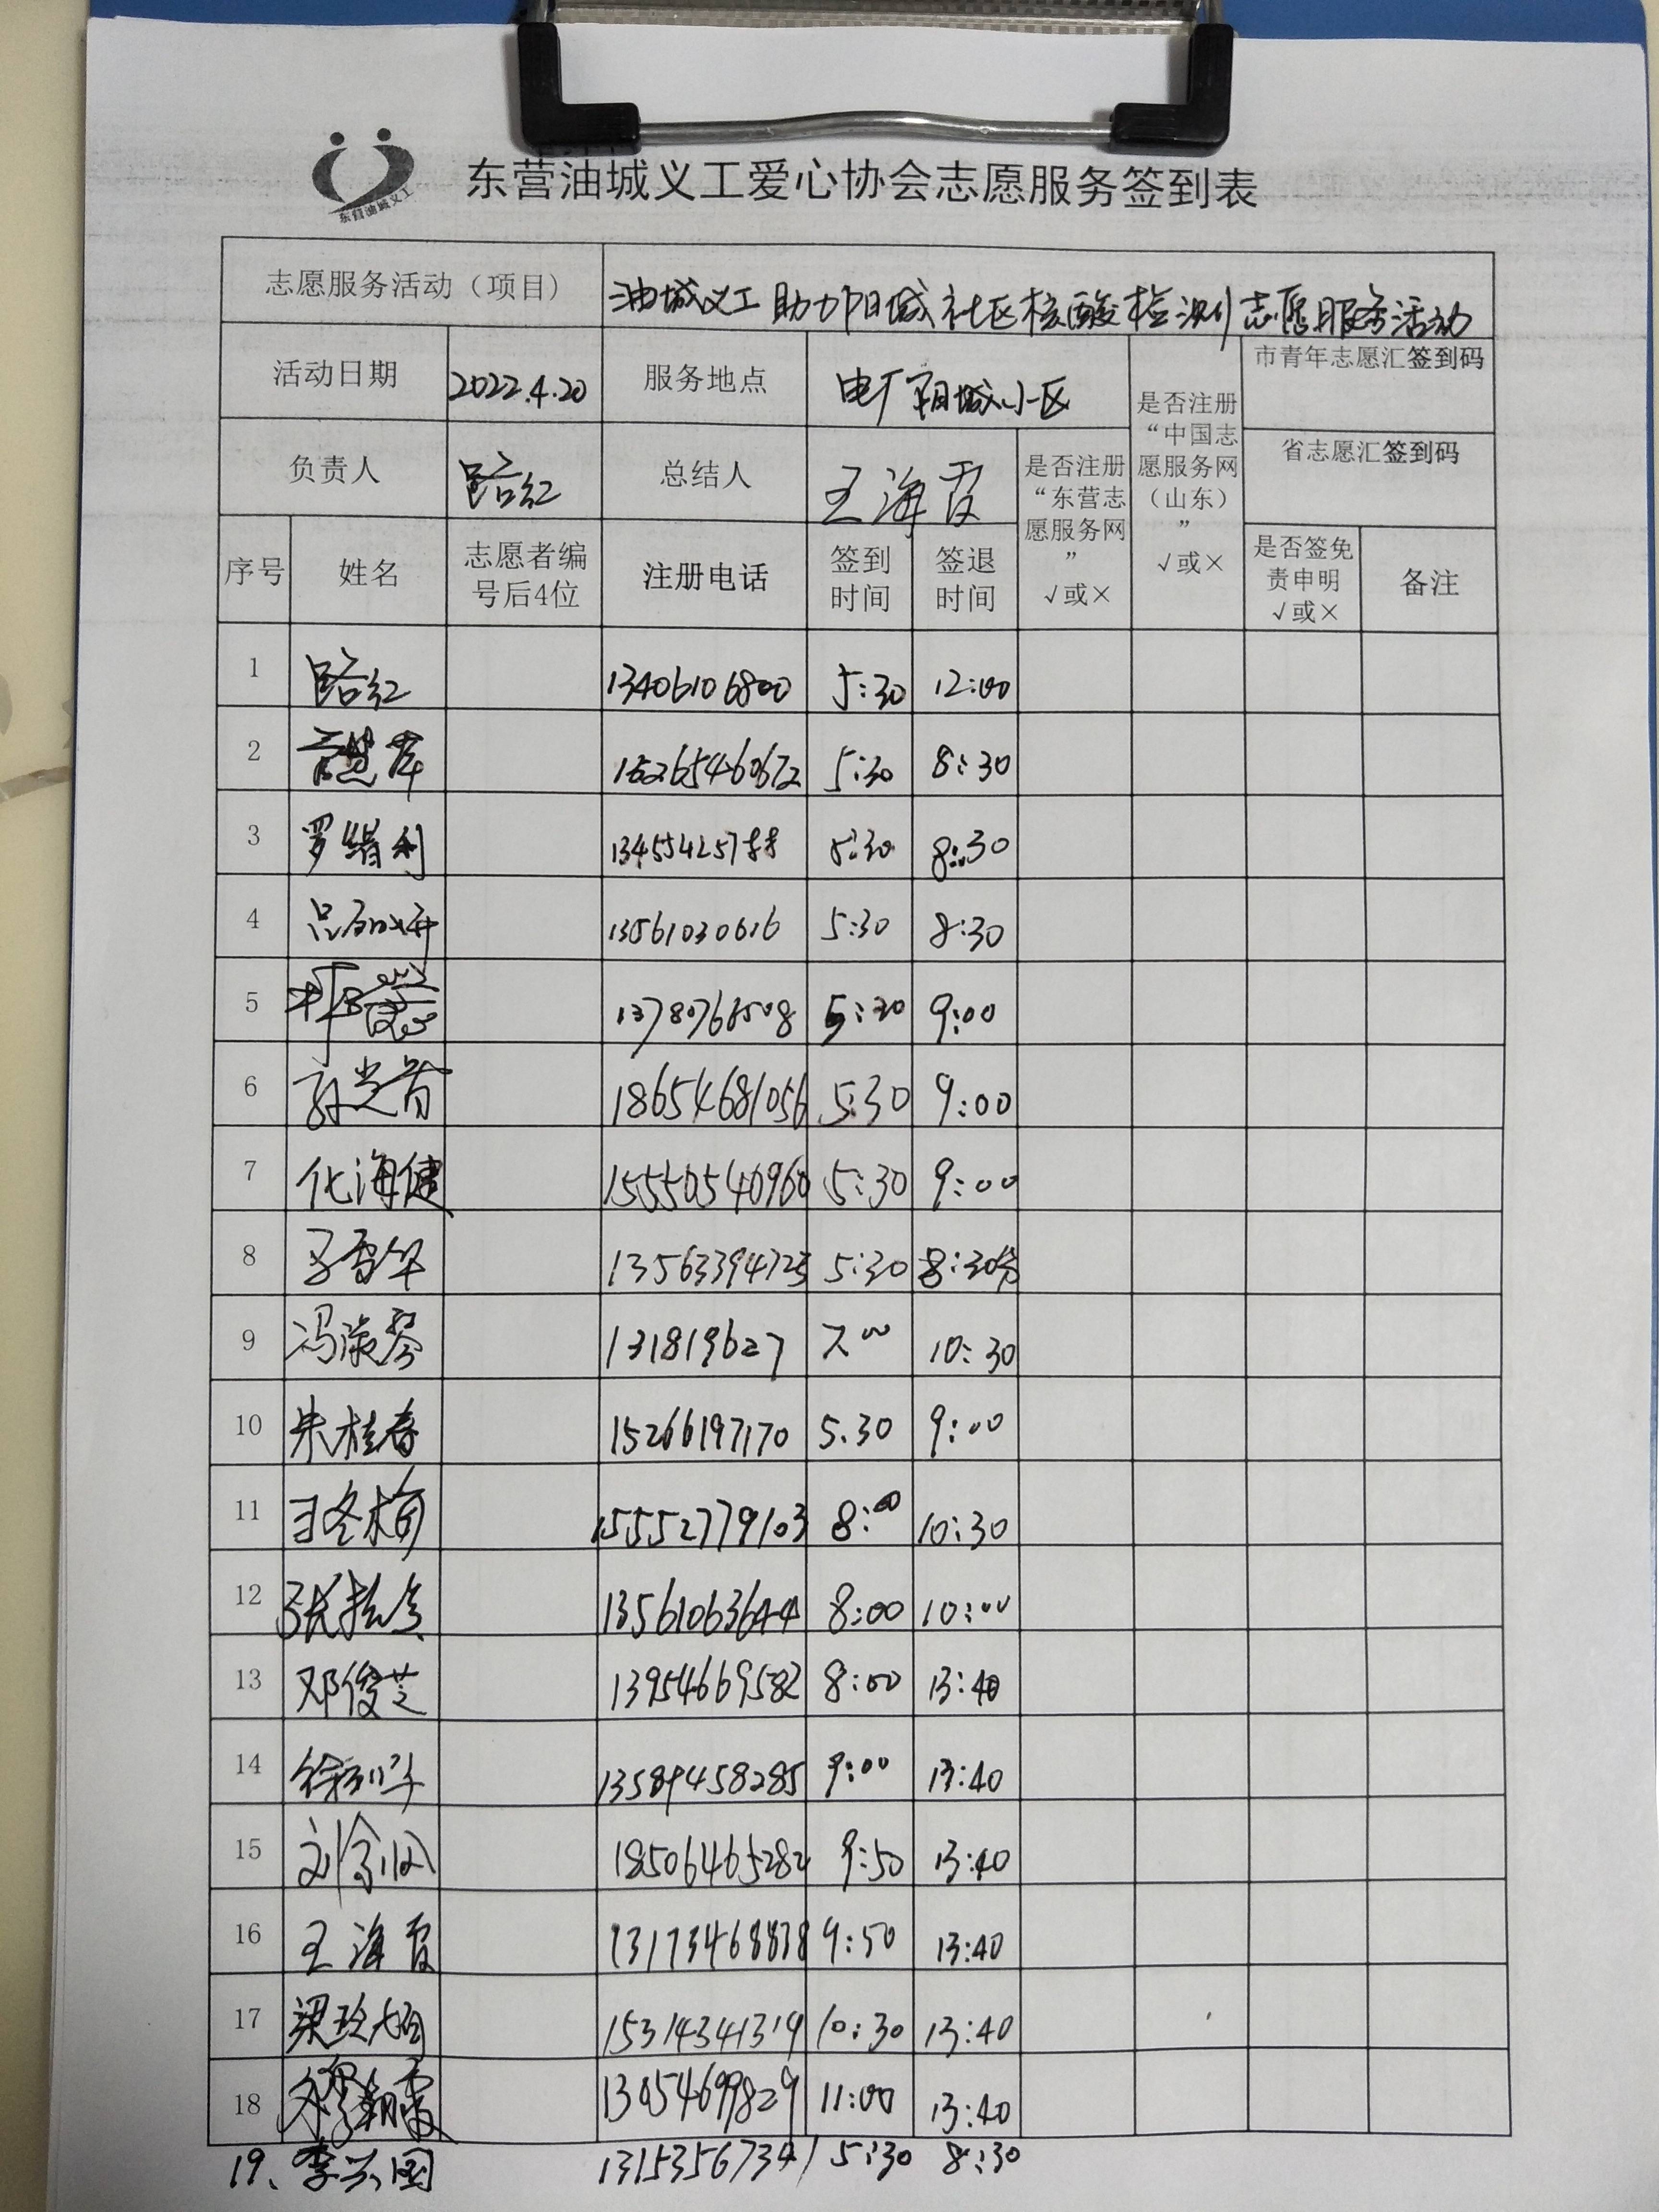 东营油城义工
东营油城义工爱心协会志愿服务签到表
志愿服务活动（项目） 油城义工助力阳城社区核酸检测志愿服务活动
活动日期 2022.4.20 服务地点 电厂阳城小区 是否注册“中国志愿服务网（山东）”√或× 市青年志愿汇签到码
负责人 路红 总结人 王海霞 是否注册“东营志愿服务网”√或× 省志愿汇签到码
序号 姓名 志愿者编号后4位 注册电话 签到时间 签退时间 是否签免责申明√或× 备注
1 路红 13406106800 5:30 12:00
2 5:30 8:30
3 罗绪利 5:30 8:30
4 13561030616 5:30 8:30
5 9:00
6 18654681056 5:30 9:00
7 化海健 15550540960 5:30 9:00
8 5:30 8:30分
9 冯淑琴 131819627 10:30
10 朱桂春 15266197170 5.30 9:00
11 王冬梅 15552779103 8:00 10:30
12 13561063644 8:00 10:00
13 邓俊芝 13954669582 8:00 13:40
14 13589458285 9:00 13:40
15 18506465282 9:50 13:40
16 王海霞 13173468838 9:50 13:40
17 15314341319 10:30 13:40
18 13054699829 11:00 13:40
19、李兴国 13153567341 5:30 8:30